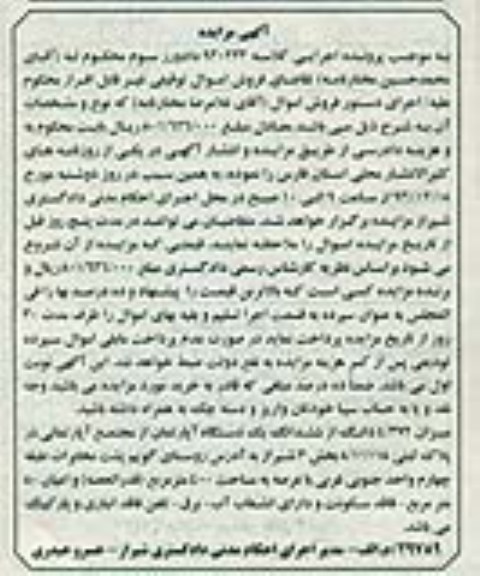 آگهی مزایده
به موجب پرونده اجرایی کلاسه دادورز سوم محکوم له آقای
محمدحسین مختارنامه تقاضای فروش اموال توقیفی غیر قابل افراز محکوم
علیه اجرای دستور فروش اموال آقای غلامرضا مختارنامه که نوع و مشخصات
آن به شرح ذیل می باشد معادل مبلغ ریال بابت محکوم به
و هزینه دادرسی از طریق مزایده و انتشار آگهی در یکی از روزنامه های
کثیرالانتشار محلی استان فارس را نموده، به همین سبب در روز دوشنبه مورخ
از ساعت ۹ الی ۱۰ صبح در محل اجرای احکام مدنی دادگستری
شیراز مزایده برگزار خواهد شد. متقاضیان می توانند در مدت پنج روز قبل
از تاریخ مزایده اموال را ملاحظه نمایند. قیمتی که مزایده از آن شروع
می شود براساس نظریه کارشناس رسمی دادگستری مبلغ ریال و
برنده مزایده کسی است که بالاترین قیمت را پیشنهاد و ده درصد بها را فی
المجلس به عنوان سپرده به قسمت اجرا تسلیم و بقیه بهای اموال را ظرف مدت ۳۰
روز از تاریخ مزایده پرداخت نماید در صورت عدم پرداخت مابقی اموال سپرده
تودیعی پس از کسر هزینه مزایده به نفع دولت ضبط خواهد شد. این آگهی نوبت
اول می باشد. ضمناً ده درصد مبلغی که قادر به خرید مورد مزایده می باشید وجه
نقد و یا به حساب سپا خودتان واریز و دسته چک به همراه داشته باشید.
میزان دانگ از ششدانگ یک دستگاه آپارتمان از مجتمع آپارتمانی در
پلاک ثبتی بخش شیراز به آدرس روستای کویم پشت مخابرات طبقه
چهارم واحد جنوبی غربی با عرصه به مساحت ۵۰۰ مترمربع (قدرالحصه) و اعیان
متر مربع - فاقد سکونت و دارای انشعاب آب - برق - تلفن فاقد انباری و پارکینگ
می باشد.
/۲۹۲۸۹ م الف - مدیر اجرای احکام مدنی دادگستری شیراز - خسرو حیدری